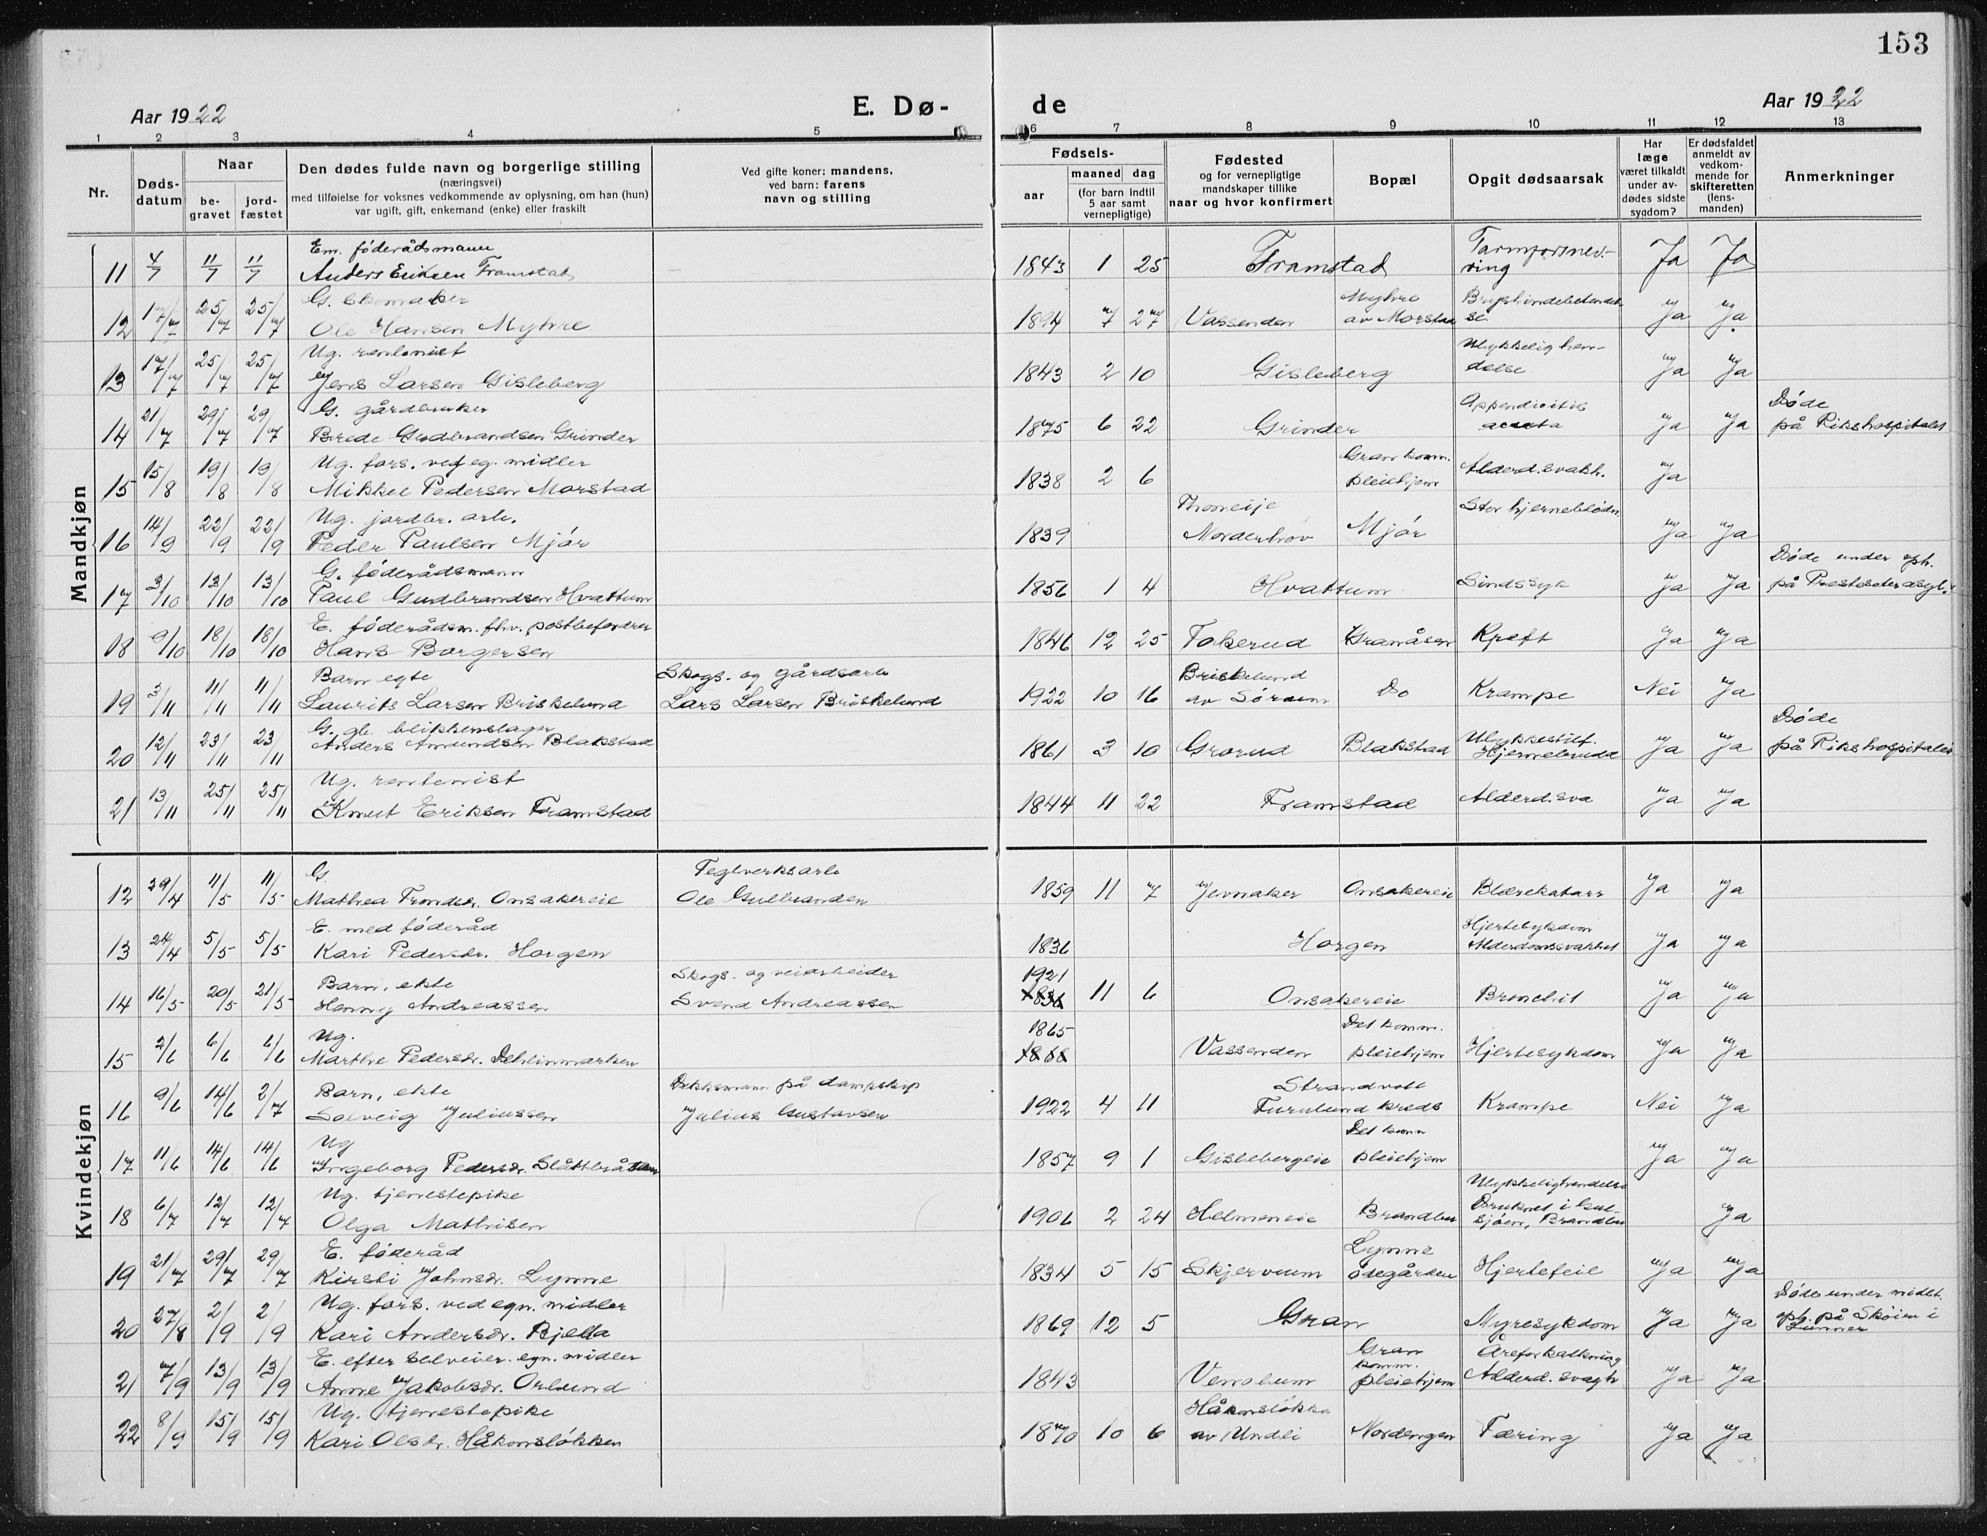 153
Aar 1922
E. Dø-
de
Aar 1922
1 2 3 4 5 6 7 8 9 10 11 12 13
Nr.
Døds-
datum
Naar
be-
gravet
jord-
fæstet
Den dødes fulde navn og borgerlige stilling
(næringsvei)
med tilføielse for voksnes vedkommende av oplysning, om han (hun)
var ugift, gift, enkemand (enke) eller fraskilt
Ved gifte koner: mandens,
ved barn: farens
navn og stilling
Fødsels-
aar
maaned dag
(for barn indtil
5 aar samt
vernepligtige)
Fødested
og for vernepligtige
mandskaper tillike
naar og hvor konfirmert
Bopæl
Opgit dødsaarsak
Har
læge
været tilkaldt
under av-
dødes sidste
sygdom?
Er dødsfaldet
anmeldt av
vedkom-
mende for
skifteretten
(lens-
manden)
Anmerkninger
Mandkjøn
Em. føderådsmann Tarmforsnev-
11 4/7 11/7 11/7 Anders Eriksen Framstad 1843 1 25 Framstad ring Ja Ja
G. skomaker Myhre Brysthindebetendel-
12 17/7 25/7 25/7 Ole Hansen Myhre 1894 7 27 Vassenden av Morstad se Ja Ja
Ug. rentenist Ulykkelig hen-
13 17/7 25/7 25/7 Jens Larsen Gisleberg 1843 2 10 Gisleberg delse Ja Ja
G. gårdbruker Appendicitis Døde
14 21/7 29/7 29/7 Brede Gudbrandsen Grinder 1875 6 22 Grinder acuta Ja Ja på Rikshospitalet
Ug. fors. ved eg. midler Gran komm.
15 15/8 19/8 19/8 Mikkel Pedersen Morstad 1838 2 6 pleiehjem Alderd.svakh. Ja
Ug. jordbr. arb. Thoneije Stor hjerneblødn.
16 14/9 22/9 22/9 Peder Paulsen Mjór 1839 Norderhov Mjór Ja Ja
G. føderådsmann Døde under oph.
17 3/10 13/10 13/10 Paul Gudbrandsen Hvattum 1856 1 4 Hvattum Sindssyk Ja Ja på Presteseter asyl.
E. føderådsm. fhv. postbefordrer
18 9/10 18/10 18/10 Hans Borgersen 1846 12 25 Tokerud Granåsen Kreft Ja Ja
Barn egte Skogs. og gårdsarb. Briskelund
19 3/11 11/11 11/11 Laurits Larsen Briskelund Lars Larsen Briskelund 1922 10 16 av Sóraum Do Krampe Nei Ja
G. gb. blikkenslager Ulykkestilf. Døde
20 12/11 23/11 23/11 Anders Amundsen Blakstad 1861 3 10 Grorud Blakstad Hjernebrudd Ja Ja på Rikshospitalet
Ug. rentenist
21 13/11 25/11 25/11 Knut Eriksen Framstad 1844 11 22 Framstad Alderd.sva Ja Ja
Kvindekjøn
G. Teglverksarb
12 29/4 11/5 11/5 Mathea Trondsdr. Onsakereie Ole Gulbrandsen 1859 11 7 Jevnaker Onsakereie Blærekatarr Ja Ja
E. med føderåd Hjertesykdom
13 24/4 5/5 5/5 Kari Pedersdr. Horgen 1836 Horgen Alderdomssvakhet Ja Ja
Barn, ekte Skogs. og veiarbeider 1921
14 16/5 20/5 21/5 Henny Andreassen Svend Andreassen 1836 11 6 Onsakereie Bronchit Ja Ja
Ug. 1865 Det komm.
15 2/6 6/6 6/6 Marthe Pedersdr. Dehlinmarken 1868 Vassenden pleiehjem Hjertesykdom Ja Ja
Barn, ekte Dekksmann på dampskip Strandvoll
16 9/6 14/6 2/7 Solveig Juliussen Julius Gustavsen 1922 4 11 Furulund kreds Krampe Nei Ja
Ug Det komm
17 11/6 14/6 14/6 Ingeborg Pedersdr. Slåttbråten 1857 9 1 Gislebergeie pleiehjem Ja Ja
Ug. tjenestepike Ulykkelig hendelse
18 6/7 12/7 12/7 Olga Mathisen 1906 2 24 Helmeneie Brandbu Druknet i Gul-
sjøen, Brandbu Ja
E. føderåd Lynne
19 21/7 29/7 29/7 Kirsti Johnsdr. Lynne 1834 5 15 Skjervum ósegården Hjertefeil Ja Ja
Ug. fors. ved egn. midler Døde under midlt.
20 27/8 2/9 2/9 Kari Andersdr. Bjella 1869 12 5 Gran Nyresykdom Ja Ja oph. på Skøien i
Lunner
E. efter selveier. egn. midler Gran komm. Åreforkalkning
21 7/9 13/9 13/9 Anne Jakobsdr. Orlund 1843 pleiehjem Alderd. svagh Ja Ja
Ug. tjenestepike Håkonsløkka
22 8/9 15/9 15/9 Kari Olsdr. Håkonsløkken 1870 10 6 av Undli Nordengen Tæring Ja Ja